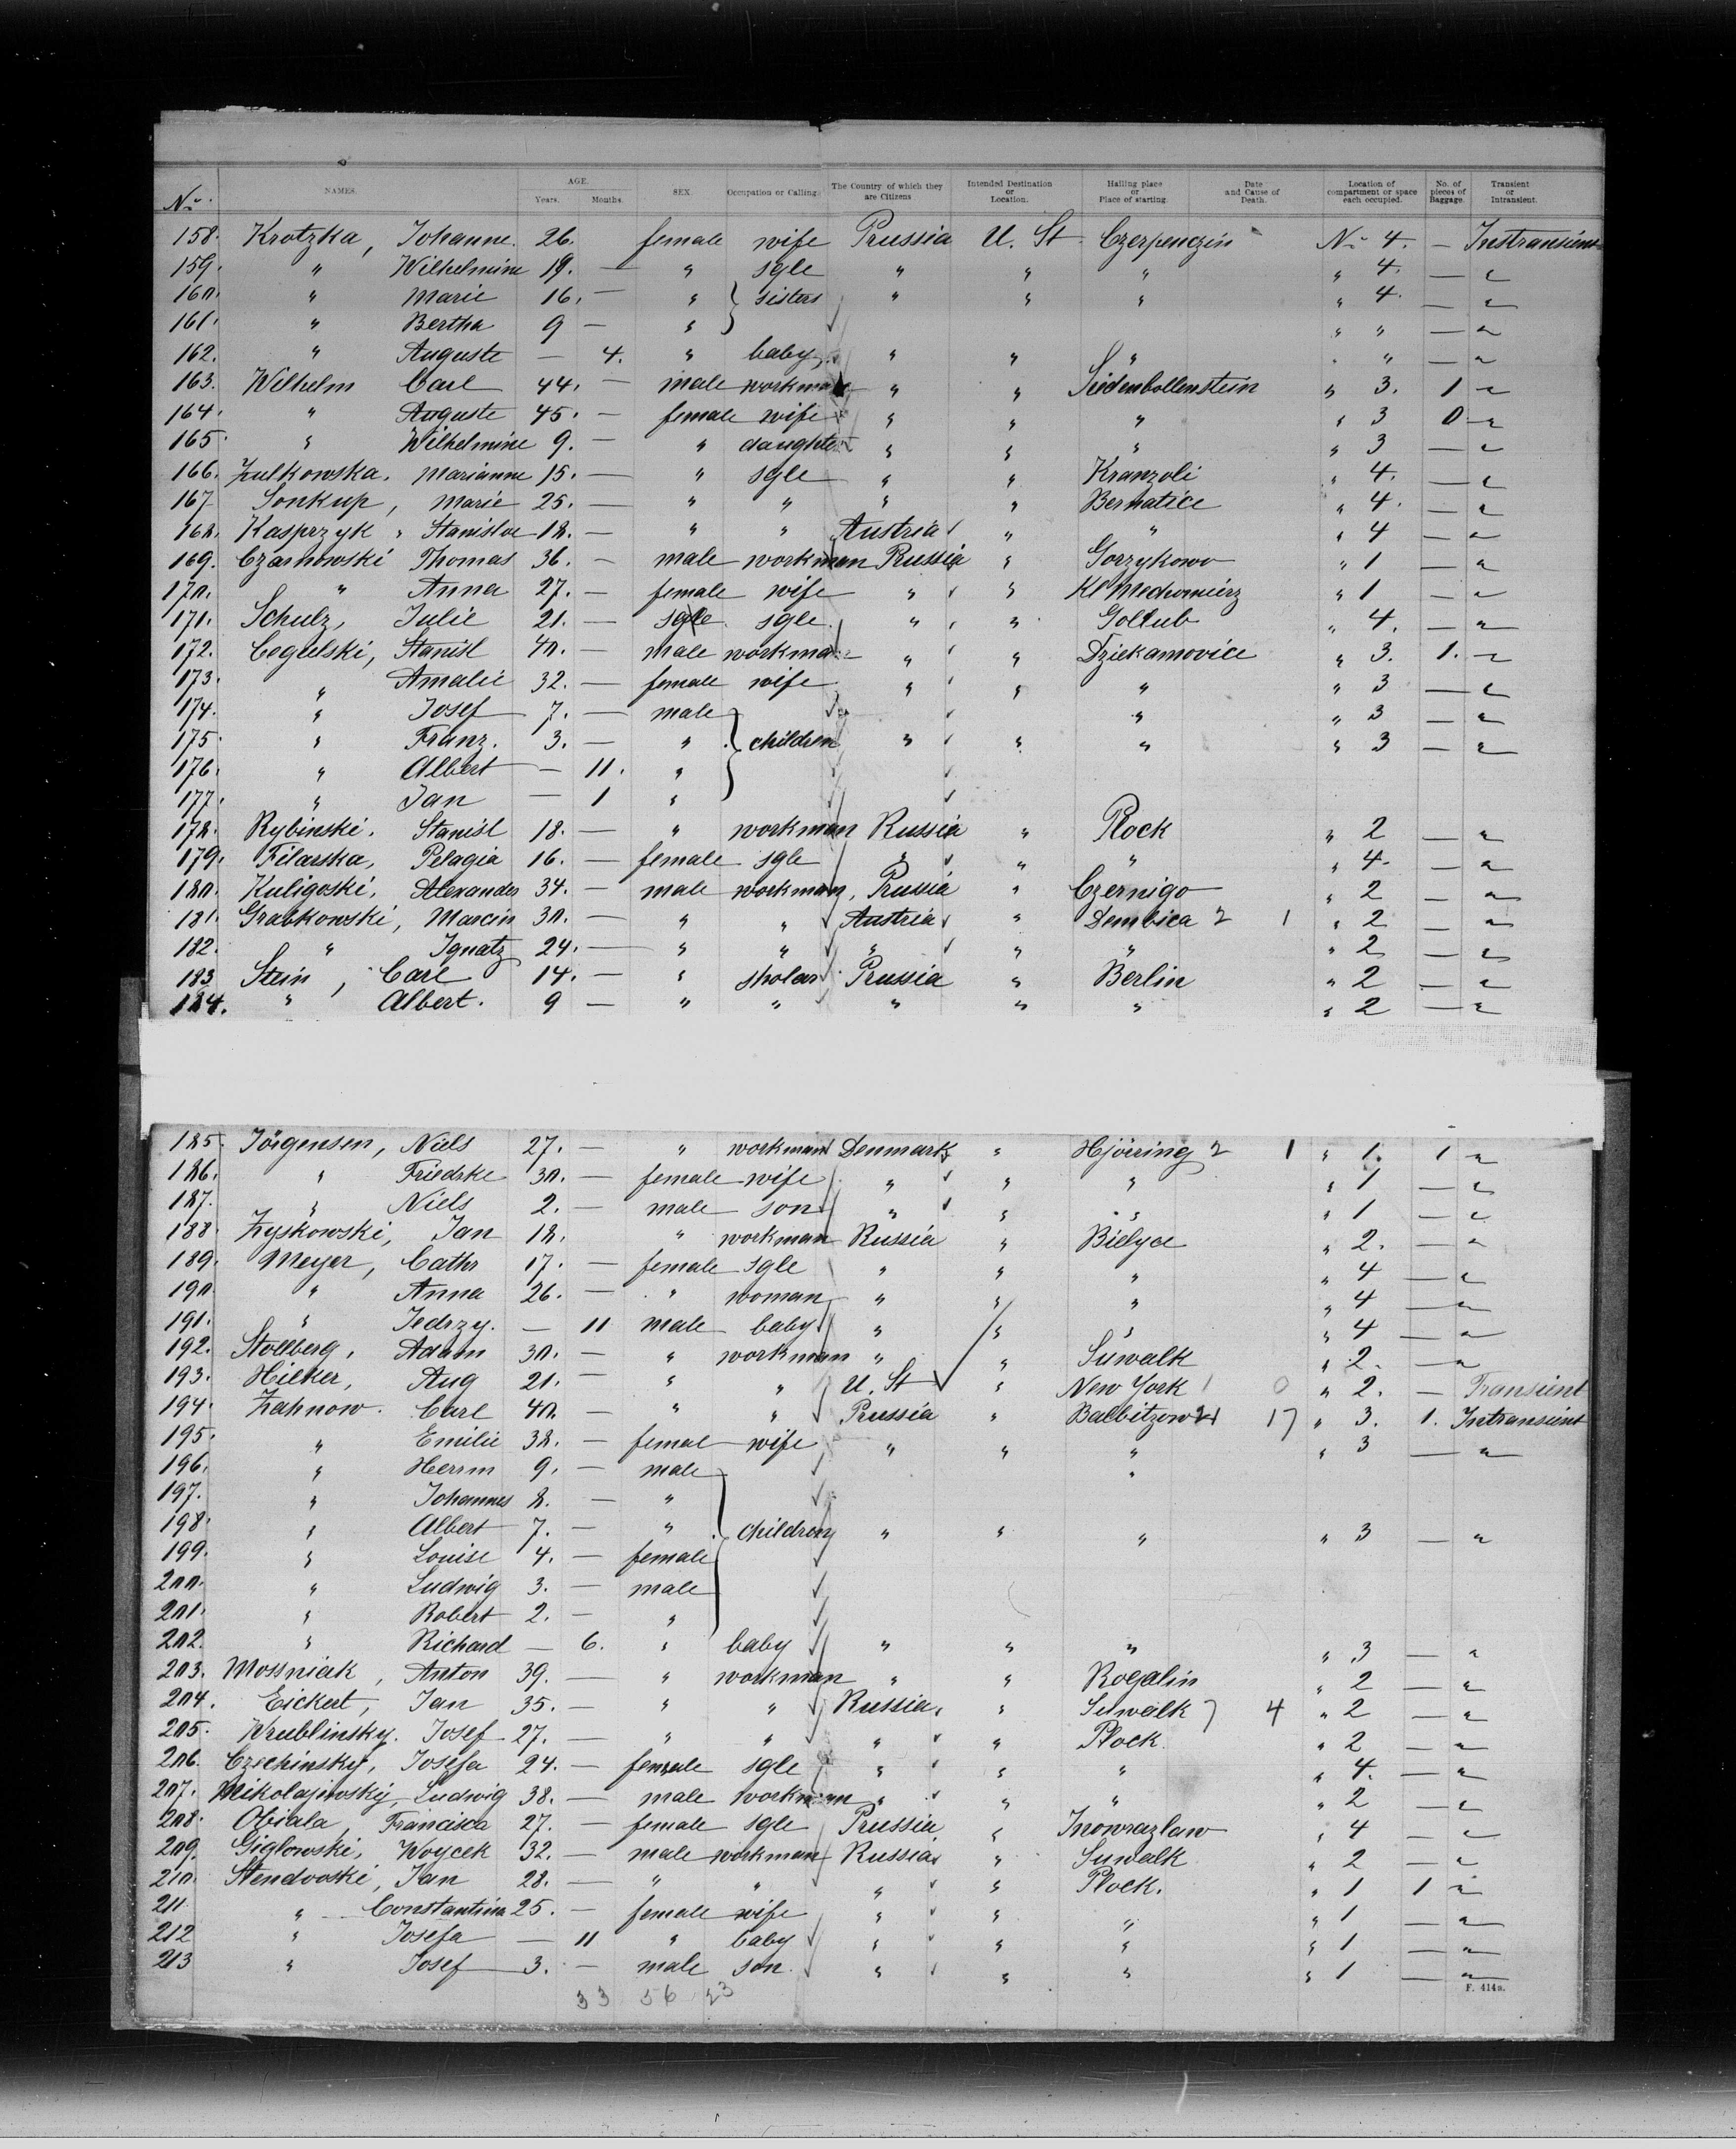 No. NAMES. AGE. Years. Months. SEX. Occupation or Calling. The Country of which they are Citizens Intended Destination or Location. Hailing place or Place of starting. Date and Cause of Death. Location of compartment or space each occupied. No. of pieces of Baggage. Transient or Intransient.
158. Krotzka, Johanne. 26. female wife Prussia U. St. Czerpenczin No 4. — Instransient
159. " Wilhelmine 19. — " sgle " " " " 4. — "
160. " Marie 16. — " sisters " " " " 4. — "
161. " Bertha 9 — " " " — "
162. " Auguste — 4. " baby " " " " — "
163. Wilhelm Carl 44. — male workman " " Seidenbollenstein " 3. 1 "
164. " Auguste 45. — female wife " " " " 3 0 "
165. " Wilhelmine 9. — " daughter " " " " 3 — "
166. Zulkowska. Marianne 15. — " sgle " " Kranzoli " 4. — "
167 Sonkup, Marie 25. — " " " " Bernatice " 4. — "
168. Kasprzyk, Stanislve 18. — " " Austria " " " 4 — "
169. Czarnowski Thomas 36. — male workman Russia " Gorzykowo " 1 — "
170. " Anna 27. — female wife " " Kl " 1 — "
171. Schulz, Julie 21. — sgle sgle. " " Gollub " 4. — "
172. Cegulski, Stanisl 40. — male workma " " Dziekamovice " 3. 1. "
173. " Amalie 32. — female wife " " " " 3 — "
174. " Josef 7. — male " " 3 — "
175. " Franz. 3. — " children " " " " 3 — "
176. " Albert — 11. "
177. " Jan — 1 "
178. Rybinski. Stanisl 18. — " workman Russia " Plock " 2 — "
179. Filarska, Pelagia 16. — female sgle " " " " 4. — "
180. Kuligoski, Alexander 34. — male workman, Prussia " Czernigo " 2 — "
181. Grabkowski, Marcin 30. — " " Austria " Dembica 2 1 " 2 — "
182. " Ignatz 24. — " " " " " " 2 — "
183 Stein, Carl 14. — " sholar Prussia " Berlin " 2 — "
184. " Albert. 9 — " " " " " " 2 — "
185. Jörgensen, Niels 27. — " workman Denmark " Hjörring 2 1 " 1. 1 "
186. " Friedrke 30. — female wife " " " " 1 — "
187. " Niels 2. — male son " " " " 1 — "
188. Zyskowski, Jan 18. " workman Russia " Bielyce " 2. — "
189. Meyer, Cathr 17. — female sgle " " " " 4 — "
190 " Anna 26. — " woman " " " " 4 — "
191. " Jedrzy. — 11 male baby " " " " 4 — "
192. Stollberg, Adam 30. — " workman " " Suwalk " 2. — "
193. Hilker, Aug 21. — " " U. St " New York 1 0 " 2. — Transient
194. Zahnow. Carl 40. — " " Prussia " Balbitzow 21 17 " 3. 1. Intransient
195. " Emilie 38. — femal wife " " " " 3 — "
196. " Herrm 9. — male "
197. " Johannes 8. — "
198. " Albert 7. — " children " " " " 3 — "
199. " Louise 4. — female
200. " Ludwig 3. — male
201. " Robert 2. — "
202. " Richard — 6. " baby " " " " 3 — "
203. Mossniak, Anton 39. — " workman " " Rogalin " 2 — "
204. Eickert, Jan 35. — " " Russia " Suwalk 7 4 " 2 — "
205. Wrublinsky. Josef 27. — " " " " Plock. " 2 — "
206. Czechinsky, Josefa 24. — female sgle " " " " 4. — "
207. Mikolajewskij, Ludwig 38. — male workman " " " " 2 — "
208. Obiala, Francisca 27. — female sgle Prussia " Inowrazlaw " 4 — "
209. Giglowski, Woycek 32. — male workman Russia " Suwalk " 2 — "
210. Stendvoski, Jan 28. — " " " " Plock. " 1 1 "
211 " Constantina 25. — female wife " " " " 1 — "
212 " Josefa — 11 " baby " " " " 1 — "
213 " Josef 3. — male son. " " " " 1 — "
F. 414a.
33 56 23